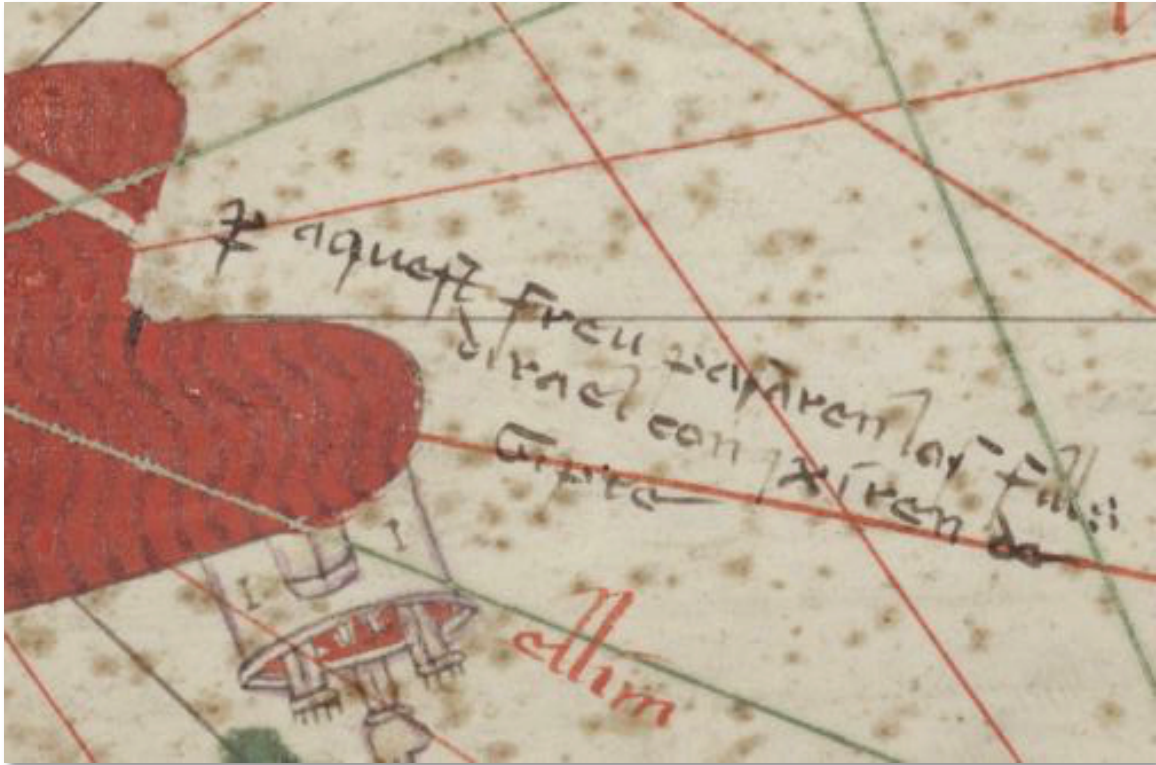 P aquest Freu pasaren los Fills
dirael con ixiren de
Gipte
ellim